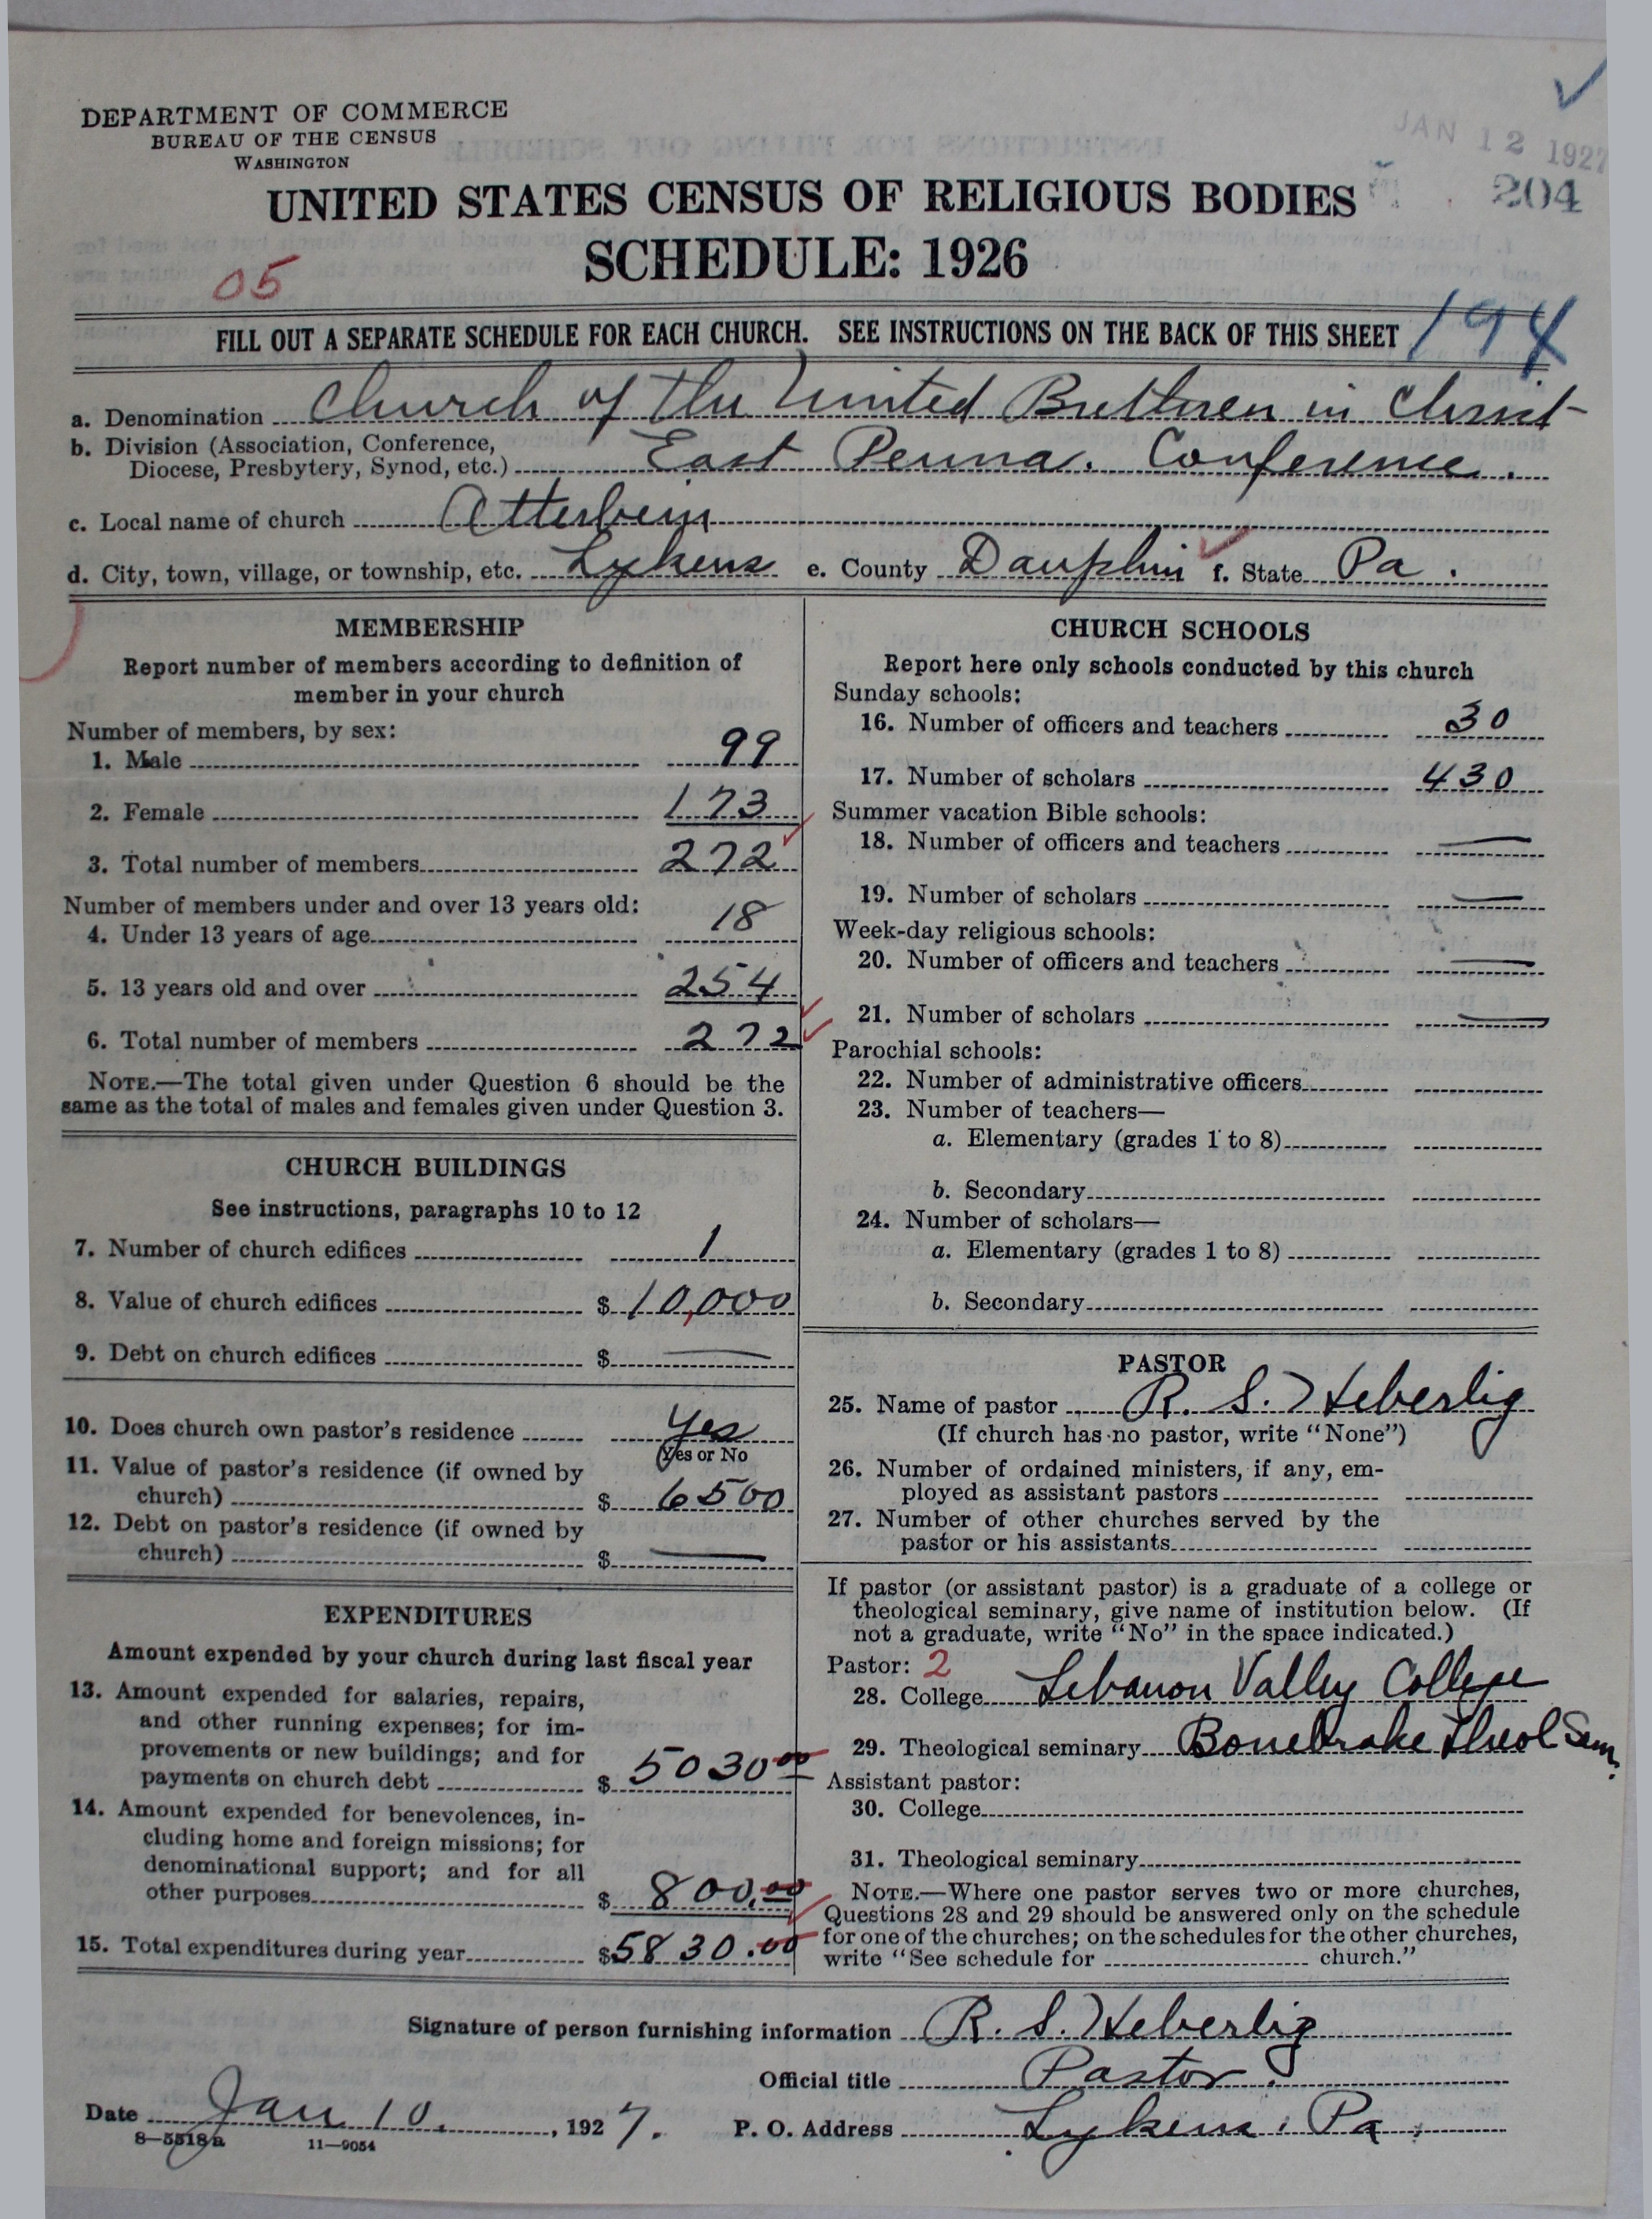 DEPARTMENT OF COMMERCE
BUREAU OF THE CENSUS
WASHINGTON
JAN 12 1927
204
UNITED STATES CENSUS OF RELIGIOUS BODIES
SCHEDULE: 1926
05
FILL OUT A SEPARATE SCHEDULE FOR EACH CHURCH. SEE INSTRUCTIONS ON THE BACK OF THIS SHEET
194
a. Denomination Church of the United Brethren in Christ
b. Division (Association, Conference,
Diocese, Presbytery, Synod, etc.) East Penna. Conference.
c. Local name of church Otterbein
d. City, town, village, or township, etc. Lykens e. County Dauphin f. State Pa.
MEMBERSHIP
Report number of members according to definition of
member in your church
Number of members, by sex:
1. Male 99
2. Female 173
3. Total number of members 272
Number of members under and over 13 years old:
4. Under 13 years of age 18
5. 13 years old and over 254
6. Total number of members 272
NOTE.—The total given under Question 6 should be the
same as the total of males and females given under Question 3.
CHURCH BUILDINGS
See instructions, paragraphs 10 to 12
7. Number of church edifices 1
8. Value of church edifices $ 10,000
9. Debt on church edifices $ —
10. Does church own pastor's residence Yes
(Yes or No
11. Value of pastor's residence (if owned by
church) $ 6500
12. Debt on pastor's residence (if owned by
church) $ —
EXPENDITURES
Amount expended by your church during last fiscal year
13. Amount expended for salaries, repairs,
and other running expenses; for im-
provements or new buildings; and for
payments on church debt $ 5030 00
14. Amount expended for benevolences, in-
cluding home and foreign missions; for
denominational support; and for all
other purposes $ 800.00
15. Total expenditures during year $5830.00
CHURCH SCHOOLS
Report here only schools conducted by this church
Sunday schools:
16. Number of officers and teachers 30
17. Number of scholars 430
Summer vacation Bible schools:
18. Number of officers and teachers —
19. Number of scholars —
Week-day religious schools:
20. Number of officers and teachers —
21. Number of scholars —
Parochial schools:
22. Number of administrative officers
23. Number of teachers—
a. Elementary (grades 1 to 8)
b. Secondary
24. Number of scholars—
a. Elementary (grades 1 to 8)
b. Secondary
PASTOR
25. Name of pastor R. S. Heberlig
(If church has no pastor, write "None")
26. Number of ordained ministers, if any, em-
ployed as assistant pastors
27. Number of other churches served by the
pastor or his assistants
If pastor (or assistant pastor) is a graduate of a college or
theological seminary, give name of institution below. (If
not a graduate, write "No" in the space indicated.)
Pastor: 2
28. College Lebanon Valley College
29. Theological seminary Bonebrake Theol Sem.
Assistant pastor:
30. College
31. Theological seminary
NOTE.—Where one pastor serves two or more churches,
Questions 28 and 29 should be answered only on the schedule
for one of the churches; on the schedules for the other churches,
write "See schedule for church."
Signature of person furnishing information R. S. Heberlig
Official title Pastor.
Date Jan 10, 1927. P. O. Address Lykens, Pa.
8—5518a 11—9054